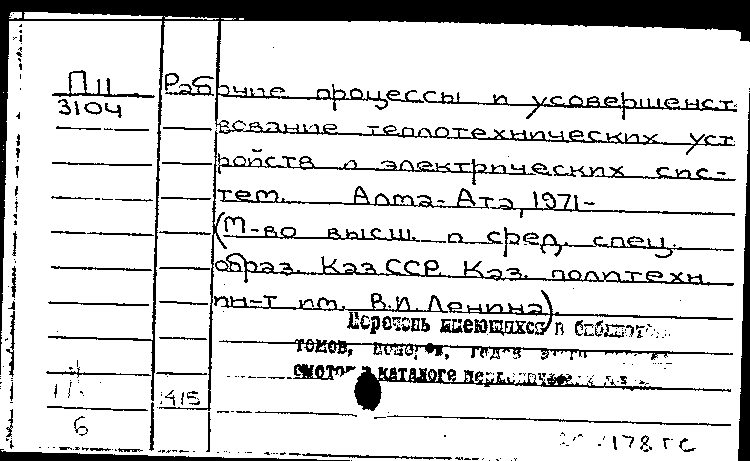 П11
3104
Рабочие процессы и усовершенст
вование теплотехнических уст
ройств и электрических сис-
тем. Алма-Ата, 1971-
(М-во высш. и сред. спец.
образ. КазССР. Каз. политехн.
ин-т им. В.И. Ленина).
Перечень имеющихся в библиот
томов, номеров, годов этого
смотри в каталоге периодических
415
6
178 ГС